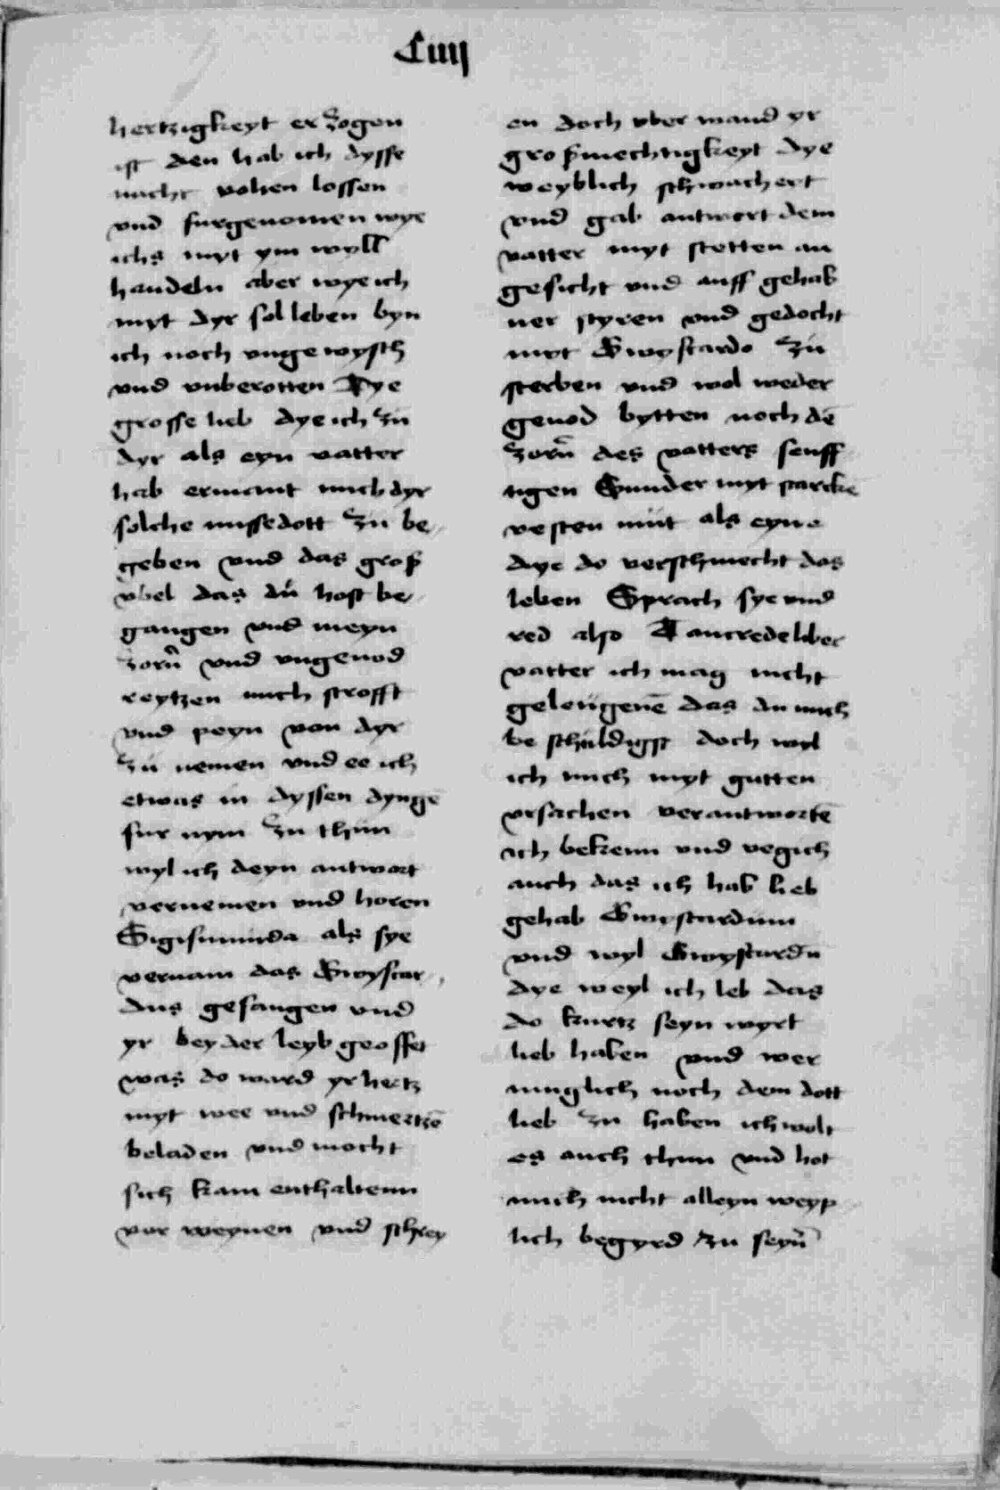 Ciiij
hertzigkeyt er zogen
ist den hab ich dysse
nacht vohen lossen
vnd furgenomen wye
ichs myt ym wyll
handeln aber wye ich
myt dyr sol leben byn
ich noch vngewysth
vnd vnberotten Dye
grosse lieb dye ich zu
dyr als eyn vatter
hab ermant mich dyr
solche missedott zu be
geben vnd das groß
vbel das du host be
gangen vnd meyn
zorn vnd vngenod
reytzen mich strofft
vnd peyn von dyr
zu nemen vnd ee ich
etwas in dyssen dyngē
fur nym zu thun
wyl ich deyn antwort
vernemen vnd horen
Sigismunda als sye
vernam das Gwyscar
dus gefangen vnd
yr beyder leyb geoffet
was do ward yr hertz
myt wee vnd schmertzē
beladen vnd mocht
sich kam enthaltenn
vor weynen vnd schrey
en doch vber wand yr
großmechtigkeyt dye
weyblich schwachert
vnd gab antwort dem
vatter myt stetten an
gesicht vnd auff gehab
ner styren vnd gedocht
myt Gwystardo zu
sterben vnd wol weder
genod bytten noch dē
zorn des vatters senff
tigen Sunder myt starckē
vesten mut als eyne
dye do verschmecht das
leben Sprach sye vnd
red also Tancrede liber
vatter ich mag nicht
geleugenē das du mich
be schuldigst doch wyl
ich mich myt gutten
vrsachen verantwortē
ich bekenn vnd vegich
auch das ich hab lieb
gehab Gwystardum
vnd wyl Gwystardū
dye weyl ich leb das
do kurtz seyn wyrt
lieb haben vnd wer
muglich noch dem dott
lieb zu haben ich wolt
es auch thun vnd hot
mich nicht alleyn weyp
lich begyrd zu seyn̄